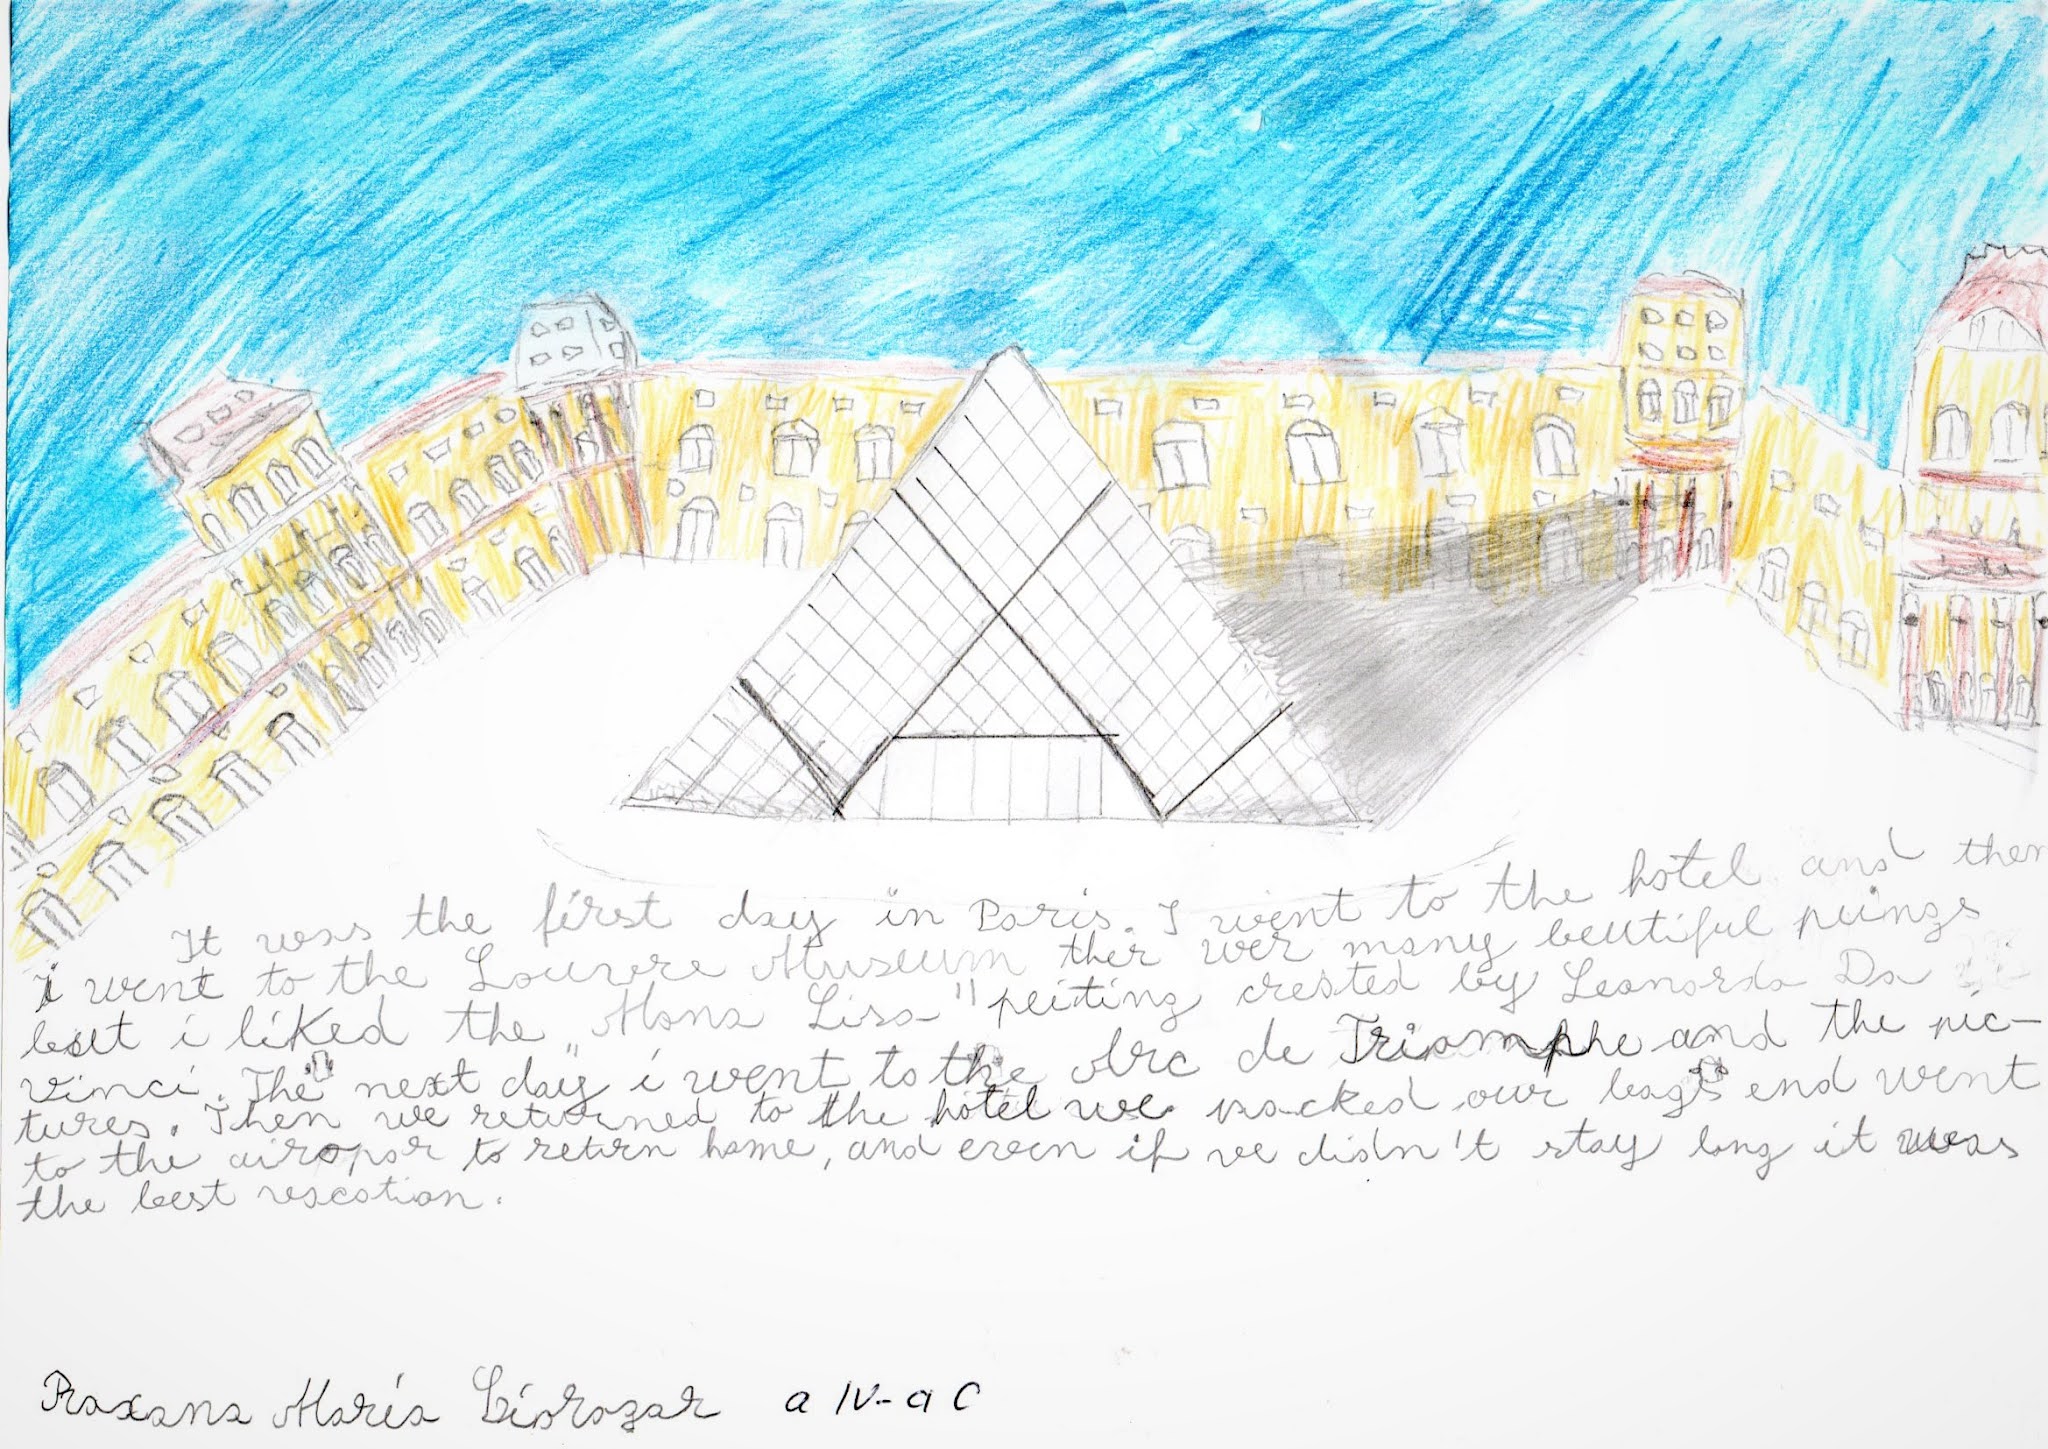 It was the first day in Paris. I went to the hotel and then
I went to the Louvere Museum ther wer many beutiful peings
but i liked the "Mona Lisa" peiting created by Leonardo Da
Vinci. The next day i went to the Arc de Triomphe and the pic-
tures. Then we returned to the hotel we packed our bags end went
to the airopor to retirn home, and even if we didn't stay long it was
the best vacation.
Roxana Maria a IV-a C